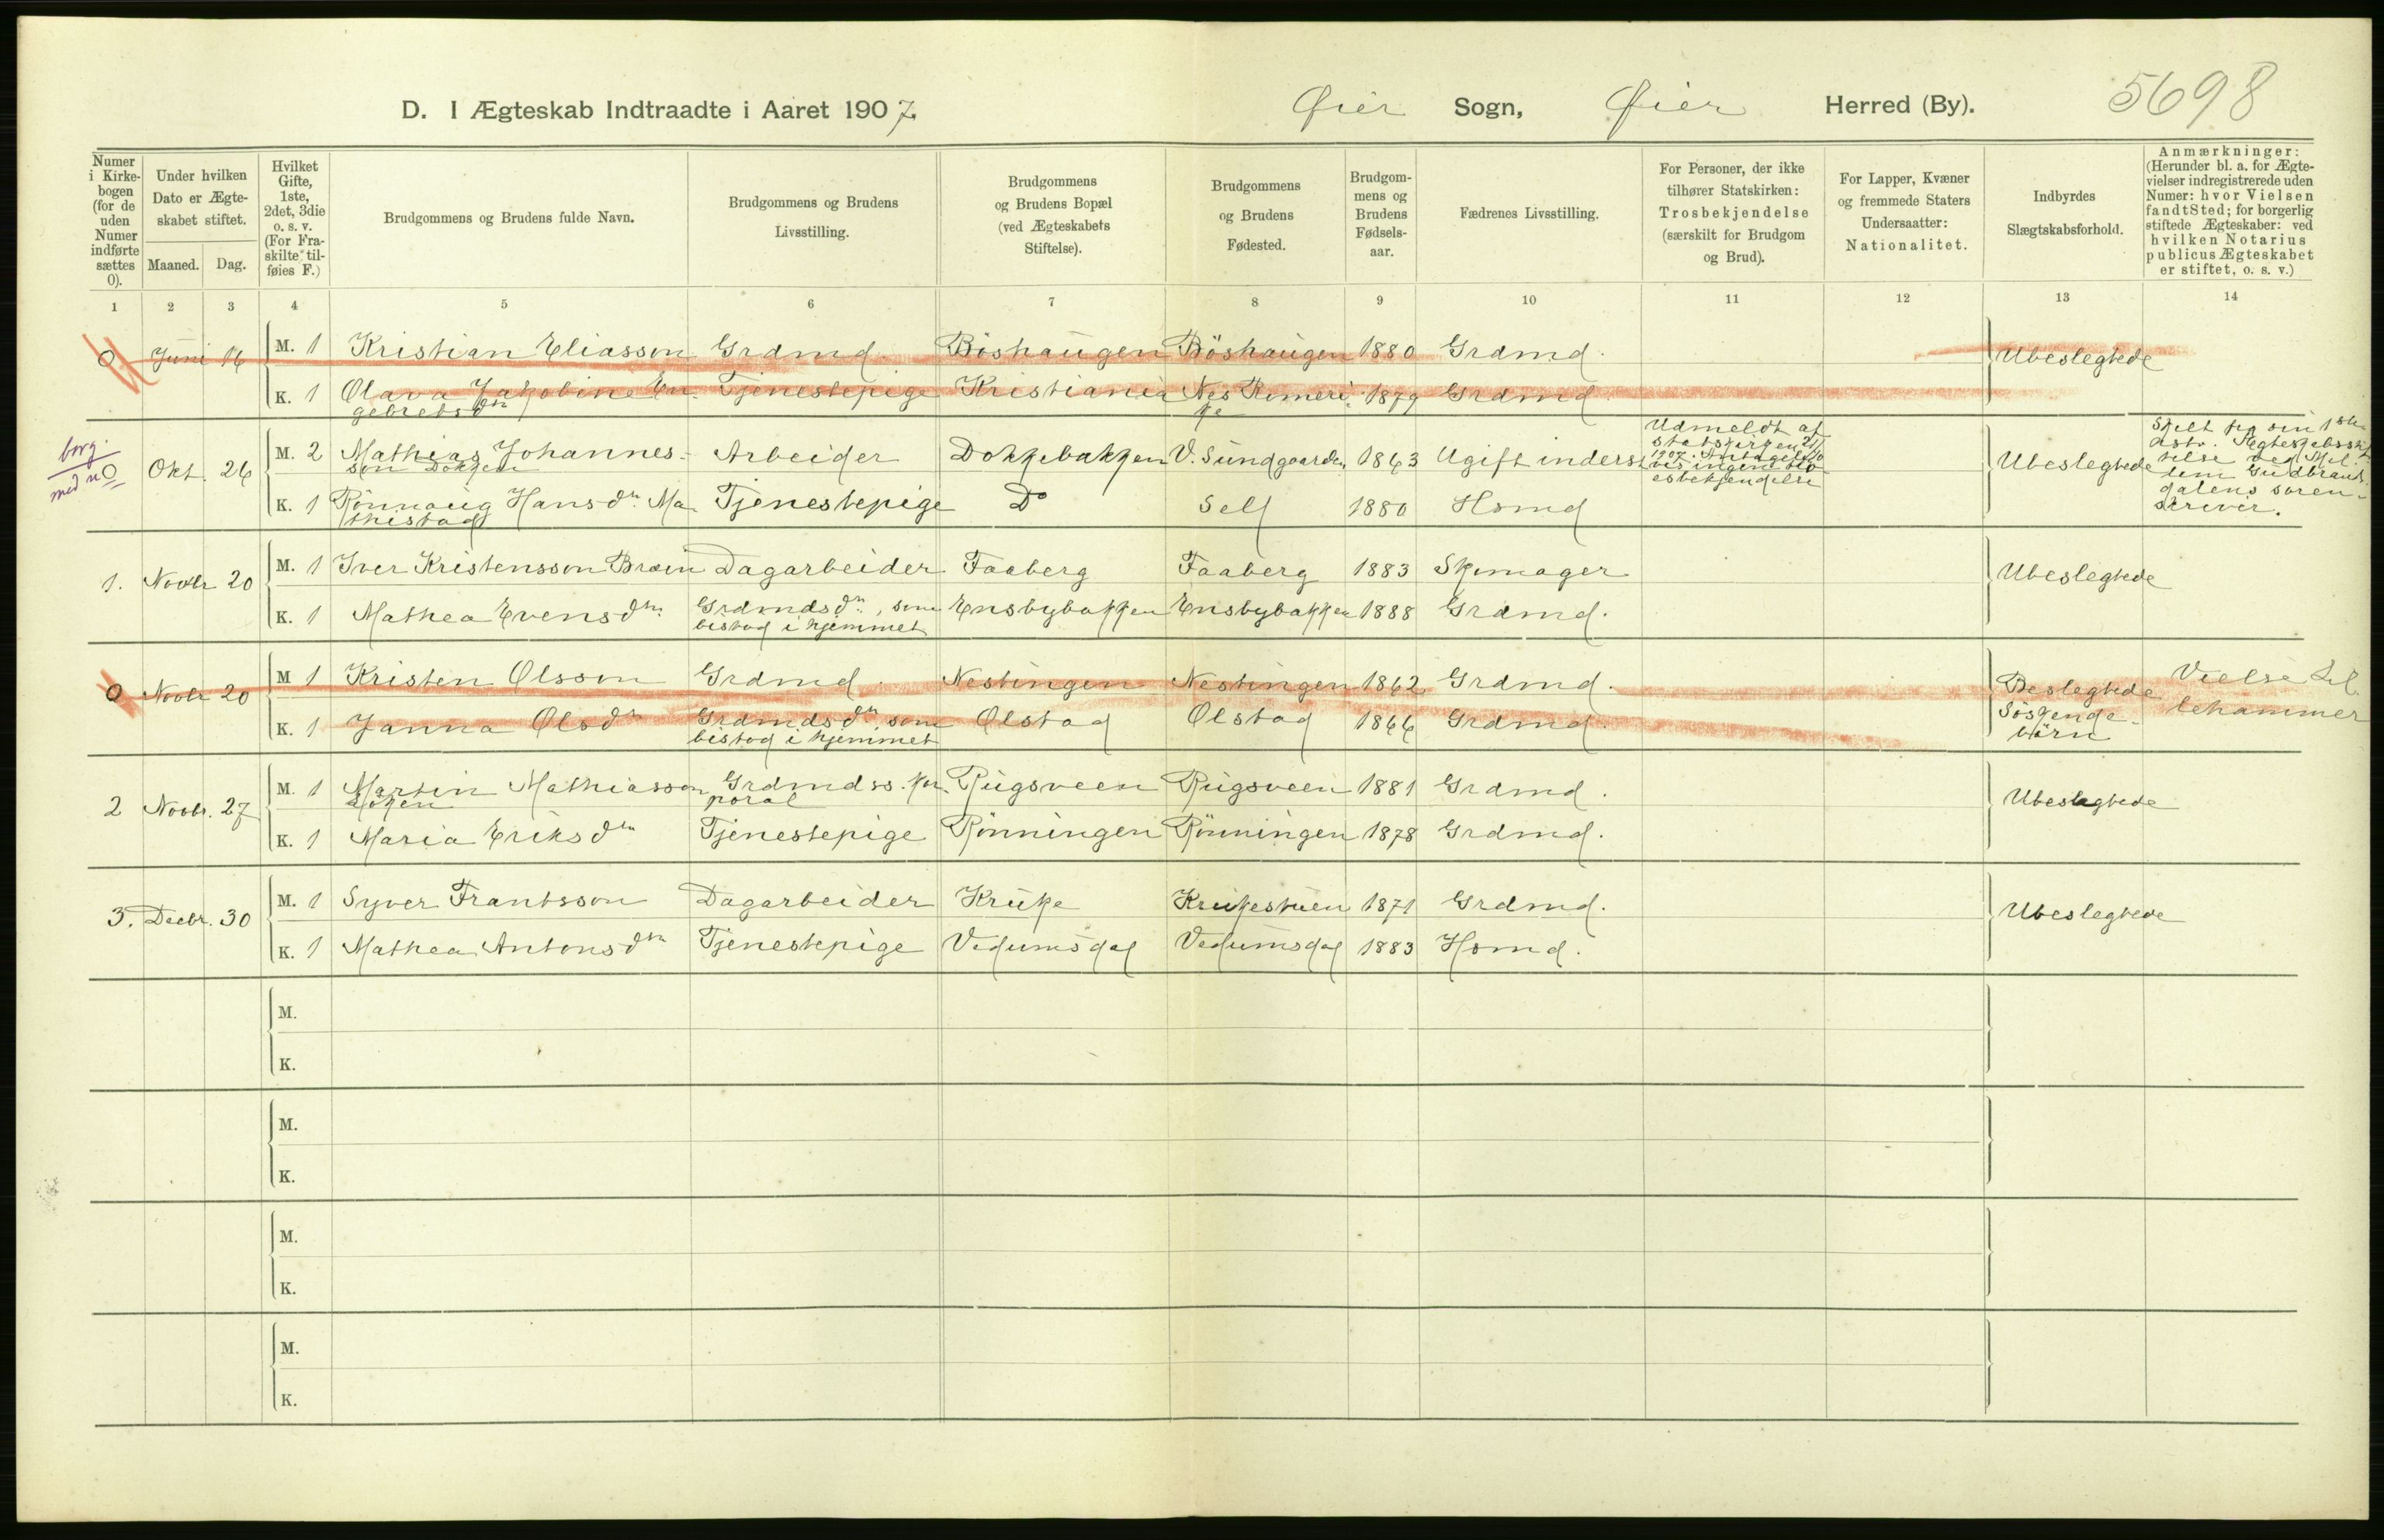 5698
D. I Ægteskab Indtraadte i Aaret 1907. Øier Sogn, Øier Herred (By).
Numer i Kirkebogen (for de uden Numer indførte sættes 0).
Under hvilken Dato er Ægteskabet stiftet.
Maaned. Dag.
Hvilket Gifte, 1ste, 2det, 3die o. s. v. (For Fraskilte tilføies F.)
Brudgommens og Brudens fulde Navn.
Brudgommens og Brudens Livsstilling.
Brudgommens og Brudens Bopæl (ved Ægteskabets Stiftelse).
Brudgommens og Brudens Fødested.
Brudgommens og Brudens Fødselsaar.
Fædrenes Livsstilling.
For Personer, der ikke tilhører Statskirken: Trosbekjendelse (særskilt for Brudgom og Brud).
For Lapper, Kvæner og fremmede Staters Undersaatter: Nationalitet.
Indbyrdes Slægtskabsforhold.
Anmærkninger: (Herunder bl. a. for Ægtevielser indregistrerede uden Numer: hvor Vielsen fandt Sted; for borgerlig stiftede Ægteskaber: ved hvilken Notarius publicus Ægteskabet er stiftet, o. s. v.)
1 2 3 4 5 6 7 8 9 10 11 12 13 14
0 Juni 16 M. 1 Kristian Eliasson Grdmd. Böshaugen Böshaugen 1880 Grdmd. Ubeslegtede
K. 1 Olava Jakobine En- Tjenestepige Kristiania Nes Romeri- 1879 Grdmd
gebretsdtr ke
borg.
med n 0
Okt. 26 M. 2 Mathias Johannes- Arbeider Dokkebakken V. Sundgaarden 1863 Ugift inderst Ubeslegtede
son Dokken
Udmeldt af
statskirken
1907. Antagelig
vis ingen tro
esbekjendelse
Skilt fra sin 1ste
Gudbrands-
dalens soren-
skriver.
K. 1 Rönnaug Hansdtr. Ma- Tjenestepige Do Sell 1880 Hsmd
thistad
1. Novbr 20 M. 1 Iver Kristensson Bræin Dagarbeider Faaberg Faaberg 1883 Skomager Ubeslegtede
K. 1 Mathea Evensdtr. Grdmdsdtr., som Ensbybakken Ensbybakken 1888 Grdmd.
bistod i hjemmet
0 Novbr 20 M 1 Kristen Olsson Grdmd. Nestingen Nestingen 1862 Grdmd. Beslegtede Vielse Lil-
K. 1 Janna Olsdtr Grdmdsdtr som Olstad Olstad 1866 Grdmd. Söskende- lehammer
bistod i hjemmet börn
2 Novbr. 27 M. 1 Martin Mathiasson Grdmdss. kor- Rugsveen Rugsveen 1881 Grdmd. Ubeslegtede
poral
K. 1 Maria Eriksdtr Tjenestepige Rönningen Rönningen 1878 Grdmd.
3. Decbr. 30 M. 1 Syver Frantsson Dagarbeider Kruke Krukestuen 1871 Grdmd. Ubeslegtede
K. 1 Mathea Antonsdtr Tjenestepige Vedumsdal Vedumsdal 1883 Hsmd.
M.
K.
M.
K.
M.
K.
M.
K.